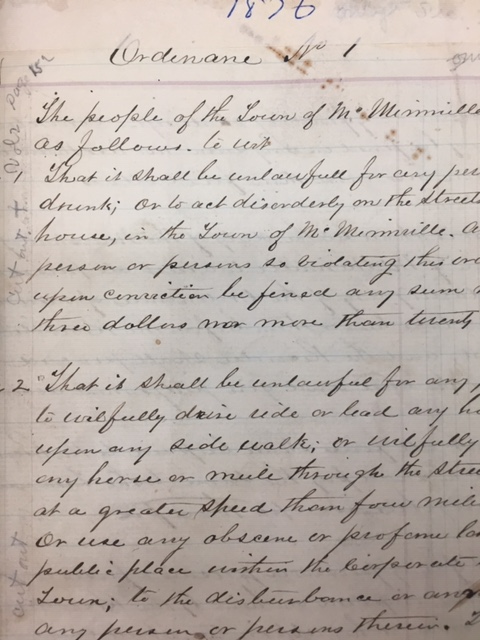 1876
Ordinane No 1
The people of the Town of Mc Minnville
as follows. to wit
1 That it shall be unlawfull for any per
drunk; Or to act disorderly on the Streets
house, in the Town of Mc Minnville. A
person or persons so violating this or
upon conviction be fined any sum
three dollars nor more than twenty
2 That it shall be unlawful for any
to wilfully drive ride or lead any ho
upon any side walk; or wilfully
any horse or mule through the stree
at a greater speed than four mile
Or use any obscene or profane la
public place within the Corporate
Town; to the disturbance or an
any person or persons therein.